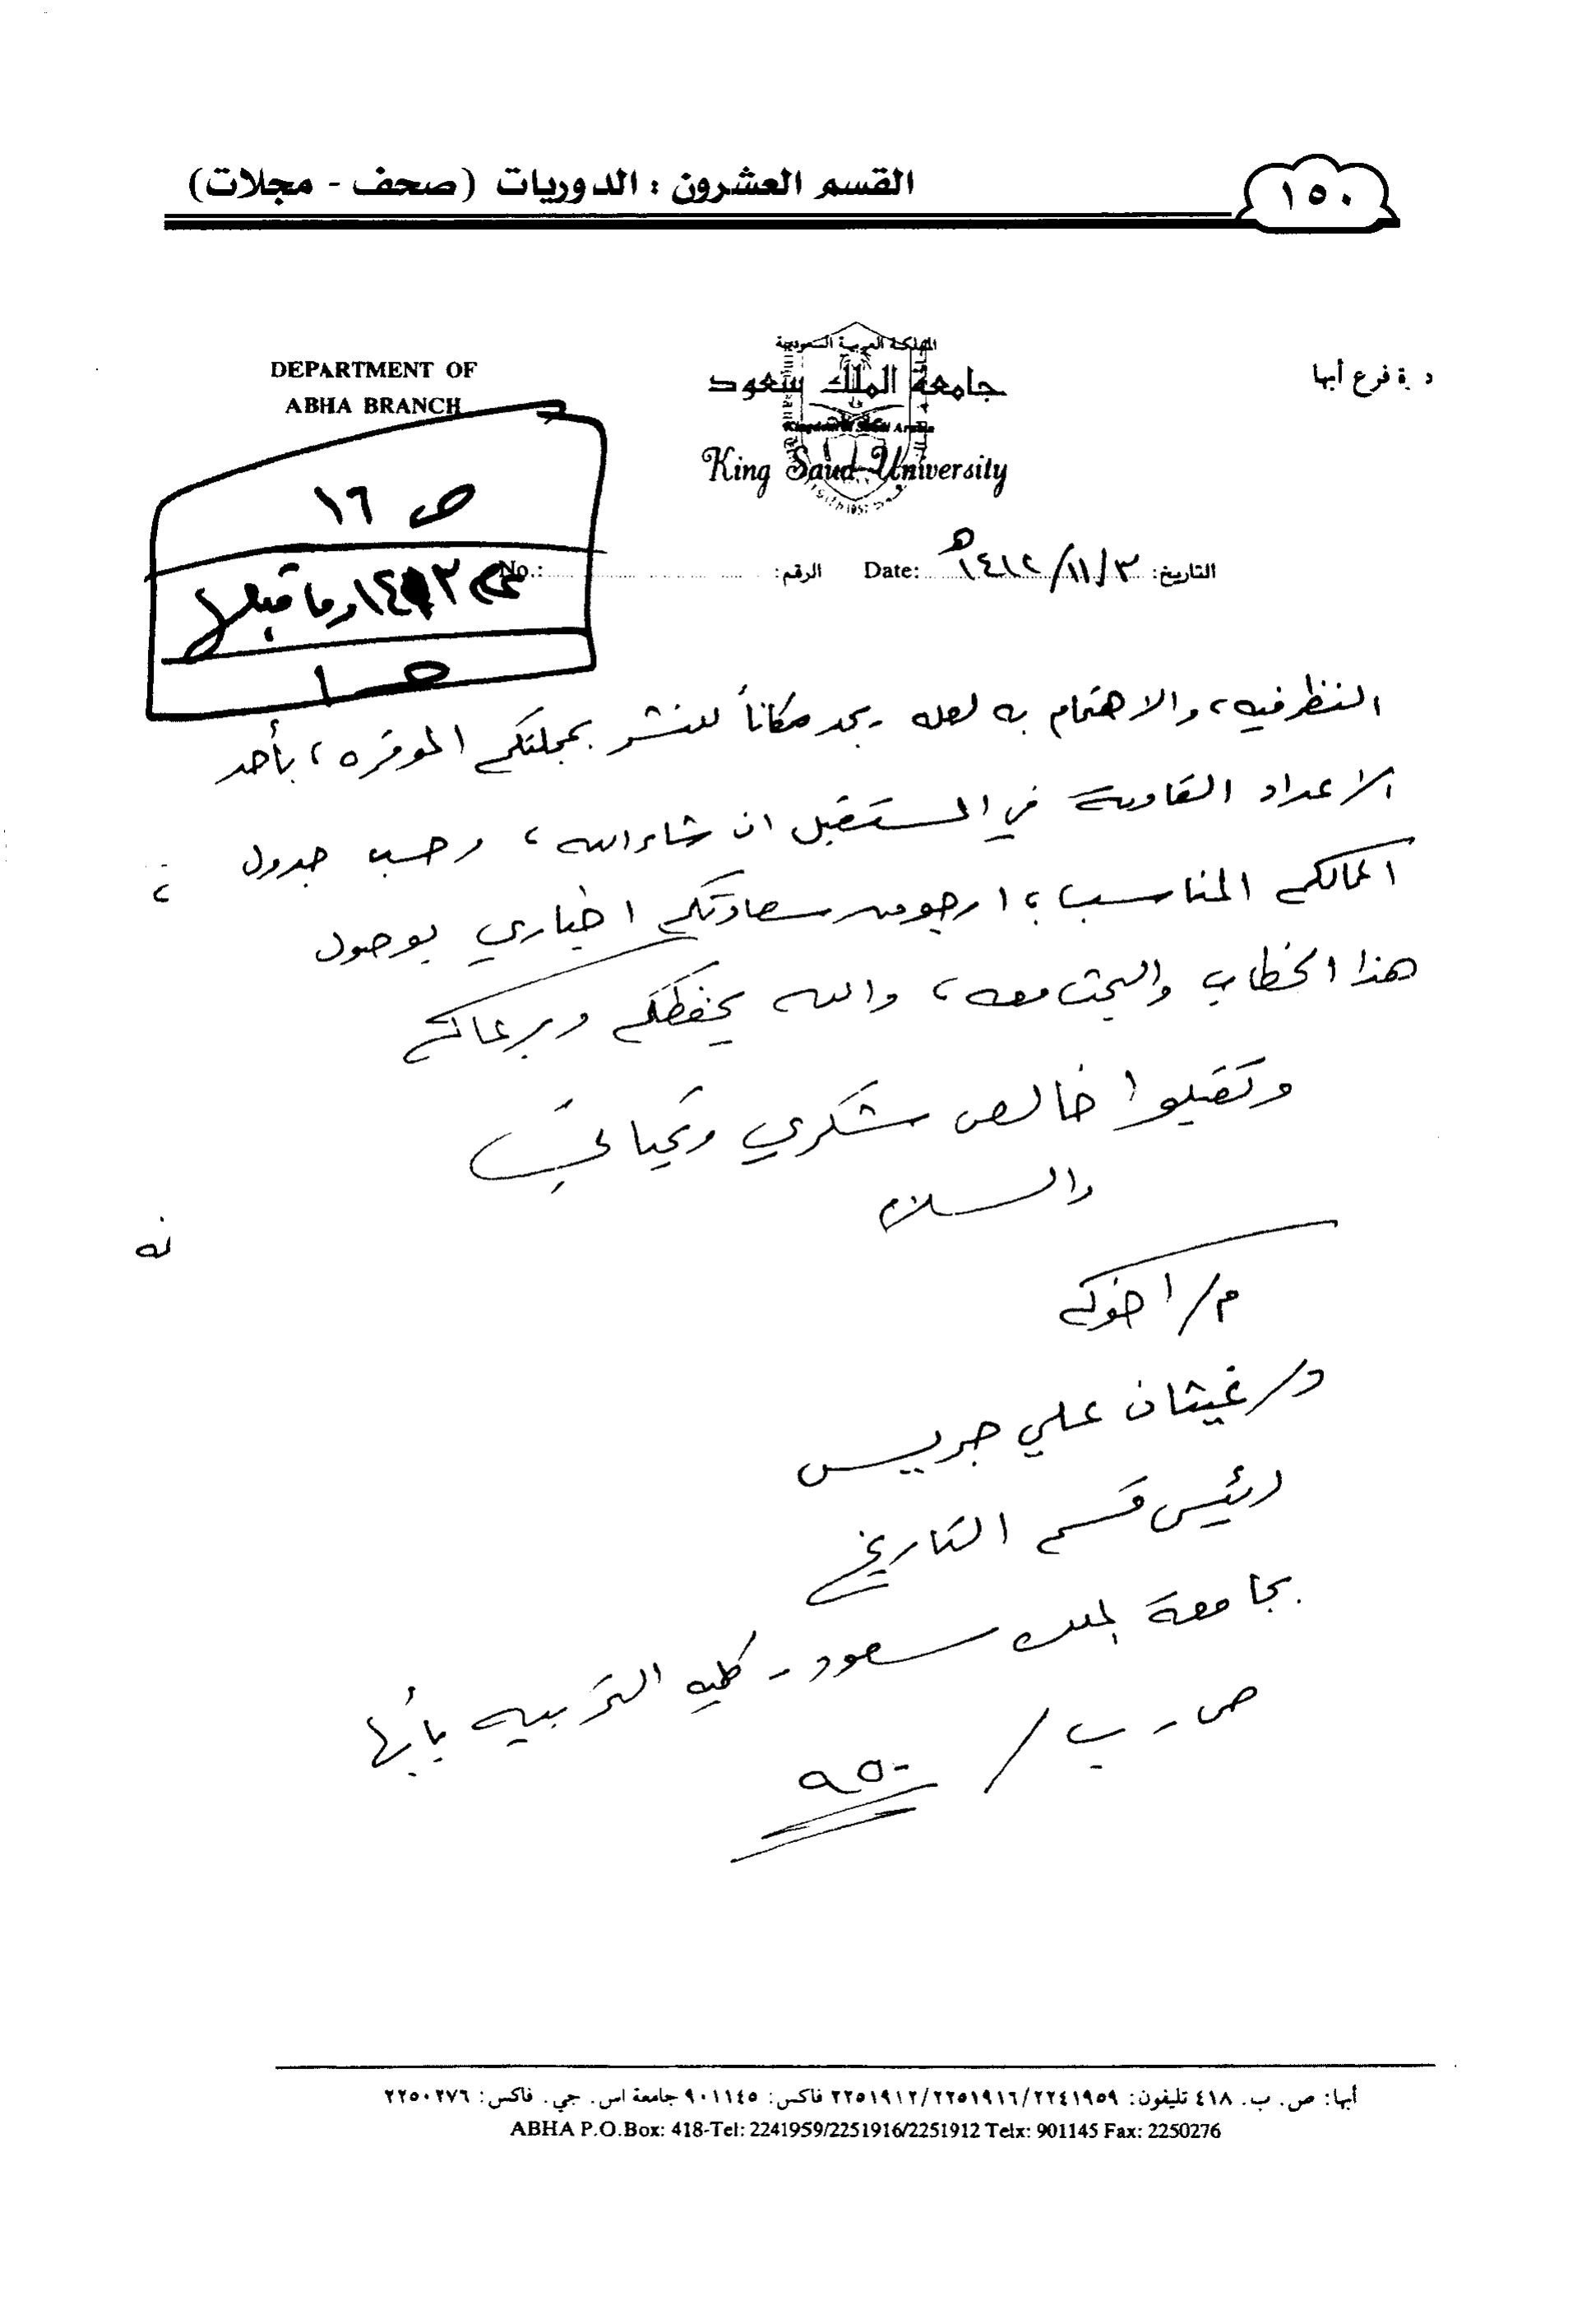 ١٥٠
القسم العشرون : الدوريات (صحف - مجلات)
د ية فرع أبها
المملكة العربية السعودية
جامعة الملك سعود
King Saud University
DEPARTMENT OF
ABHA BRANCH
التاريخ: ١٤١٢/١١/٣هـ Date: الرقم: No.:
ص ١٦
وما قبلها
النظر فيه، والاهتمام به لعله يجد مكاناً للنشر بمجلتكم الموقره، بأحد
الاعداد القادمة في المستقبل ان شاء الله، وحسب جدول
المناسب، ارجو من سعادتكم اخباري بوصول
هذا الخطاب والبحث معه، والله يحفظكم ويرعاكم
وتقبلوا خالص شكري وتحياتي
والسلام
م/ اخوكم
د/ غيثان علي جريس
رئيس قسم التاريخ
بجامعة الملك سعود - كلية التربيه بأبها
ص.ب / ٩٥٠
أبها: ص. ب. ٤١٨ تليفون: ٢٢٥١٩١٢/٢٢٥١٩١٦/٢٢٤١٩٥٩ فاكس: ٩٠١١٤٥ جامعة اس. جي. فاكس: ٢٢٥٠٢٧٦
ABHA P.O.Box: 418-Tel: 2241959/2251916/2251912 Telx: 901145 Fax: 2250276